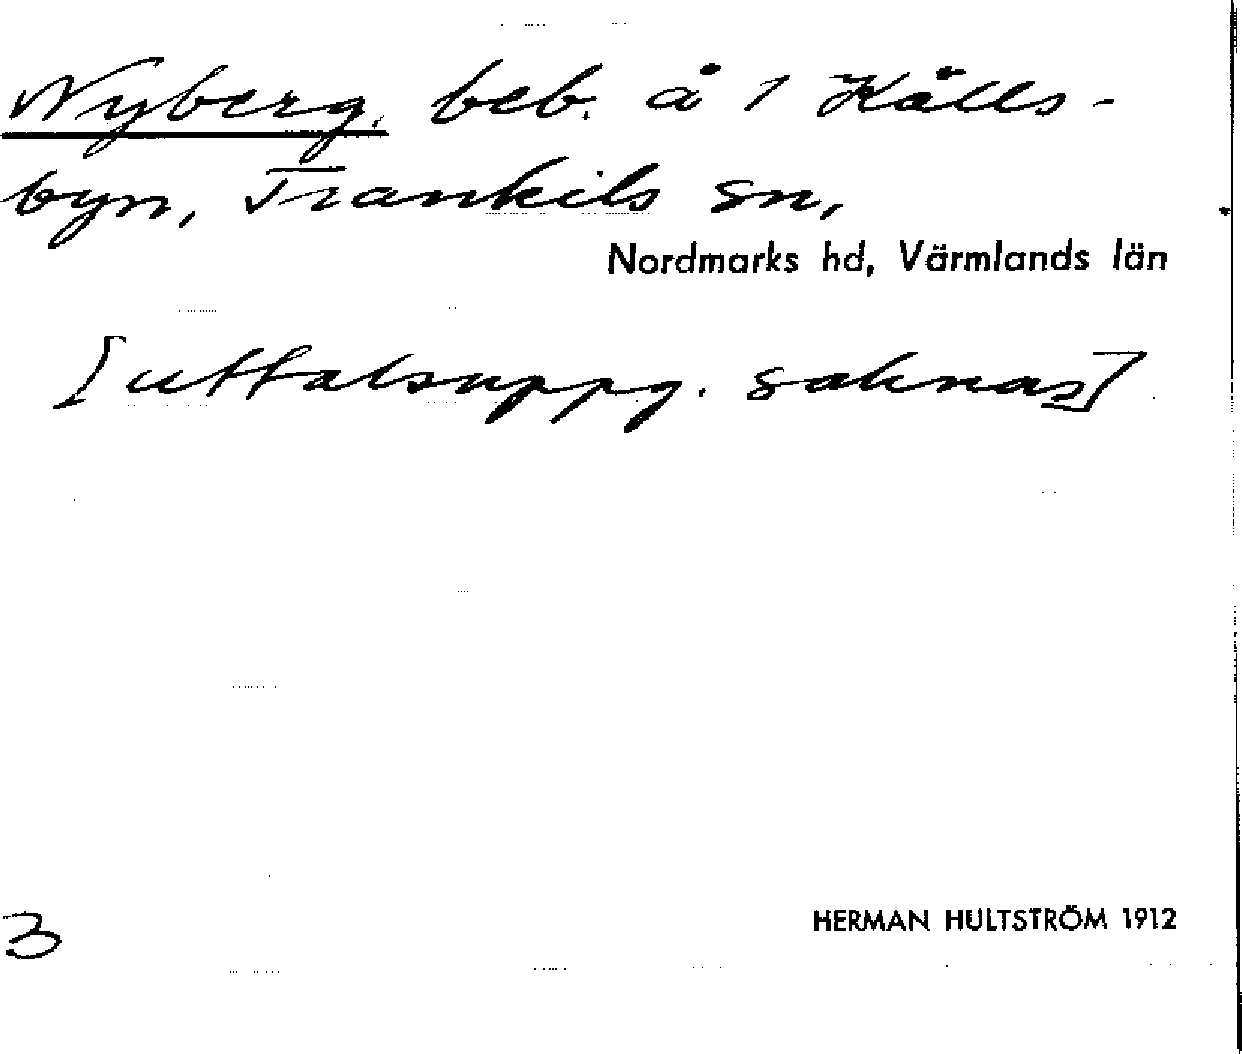 Nyberg, beb. å 1 Källs-
byn, Trankils sn,
Nordmarks hd, Värmlands län
[uttalsuppg. saknas]
3
HERMAN HULTSTRÖM 1912